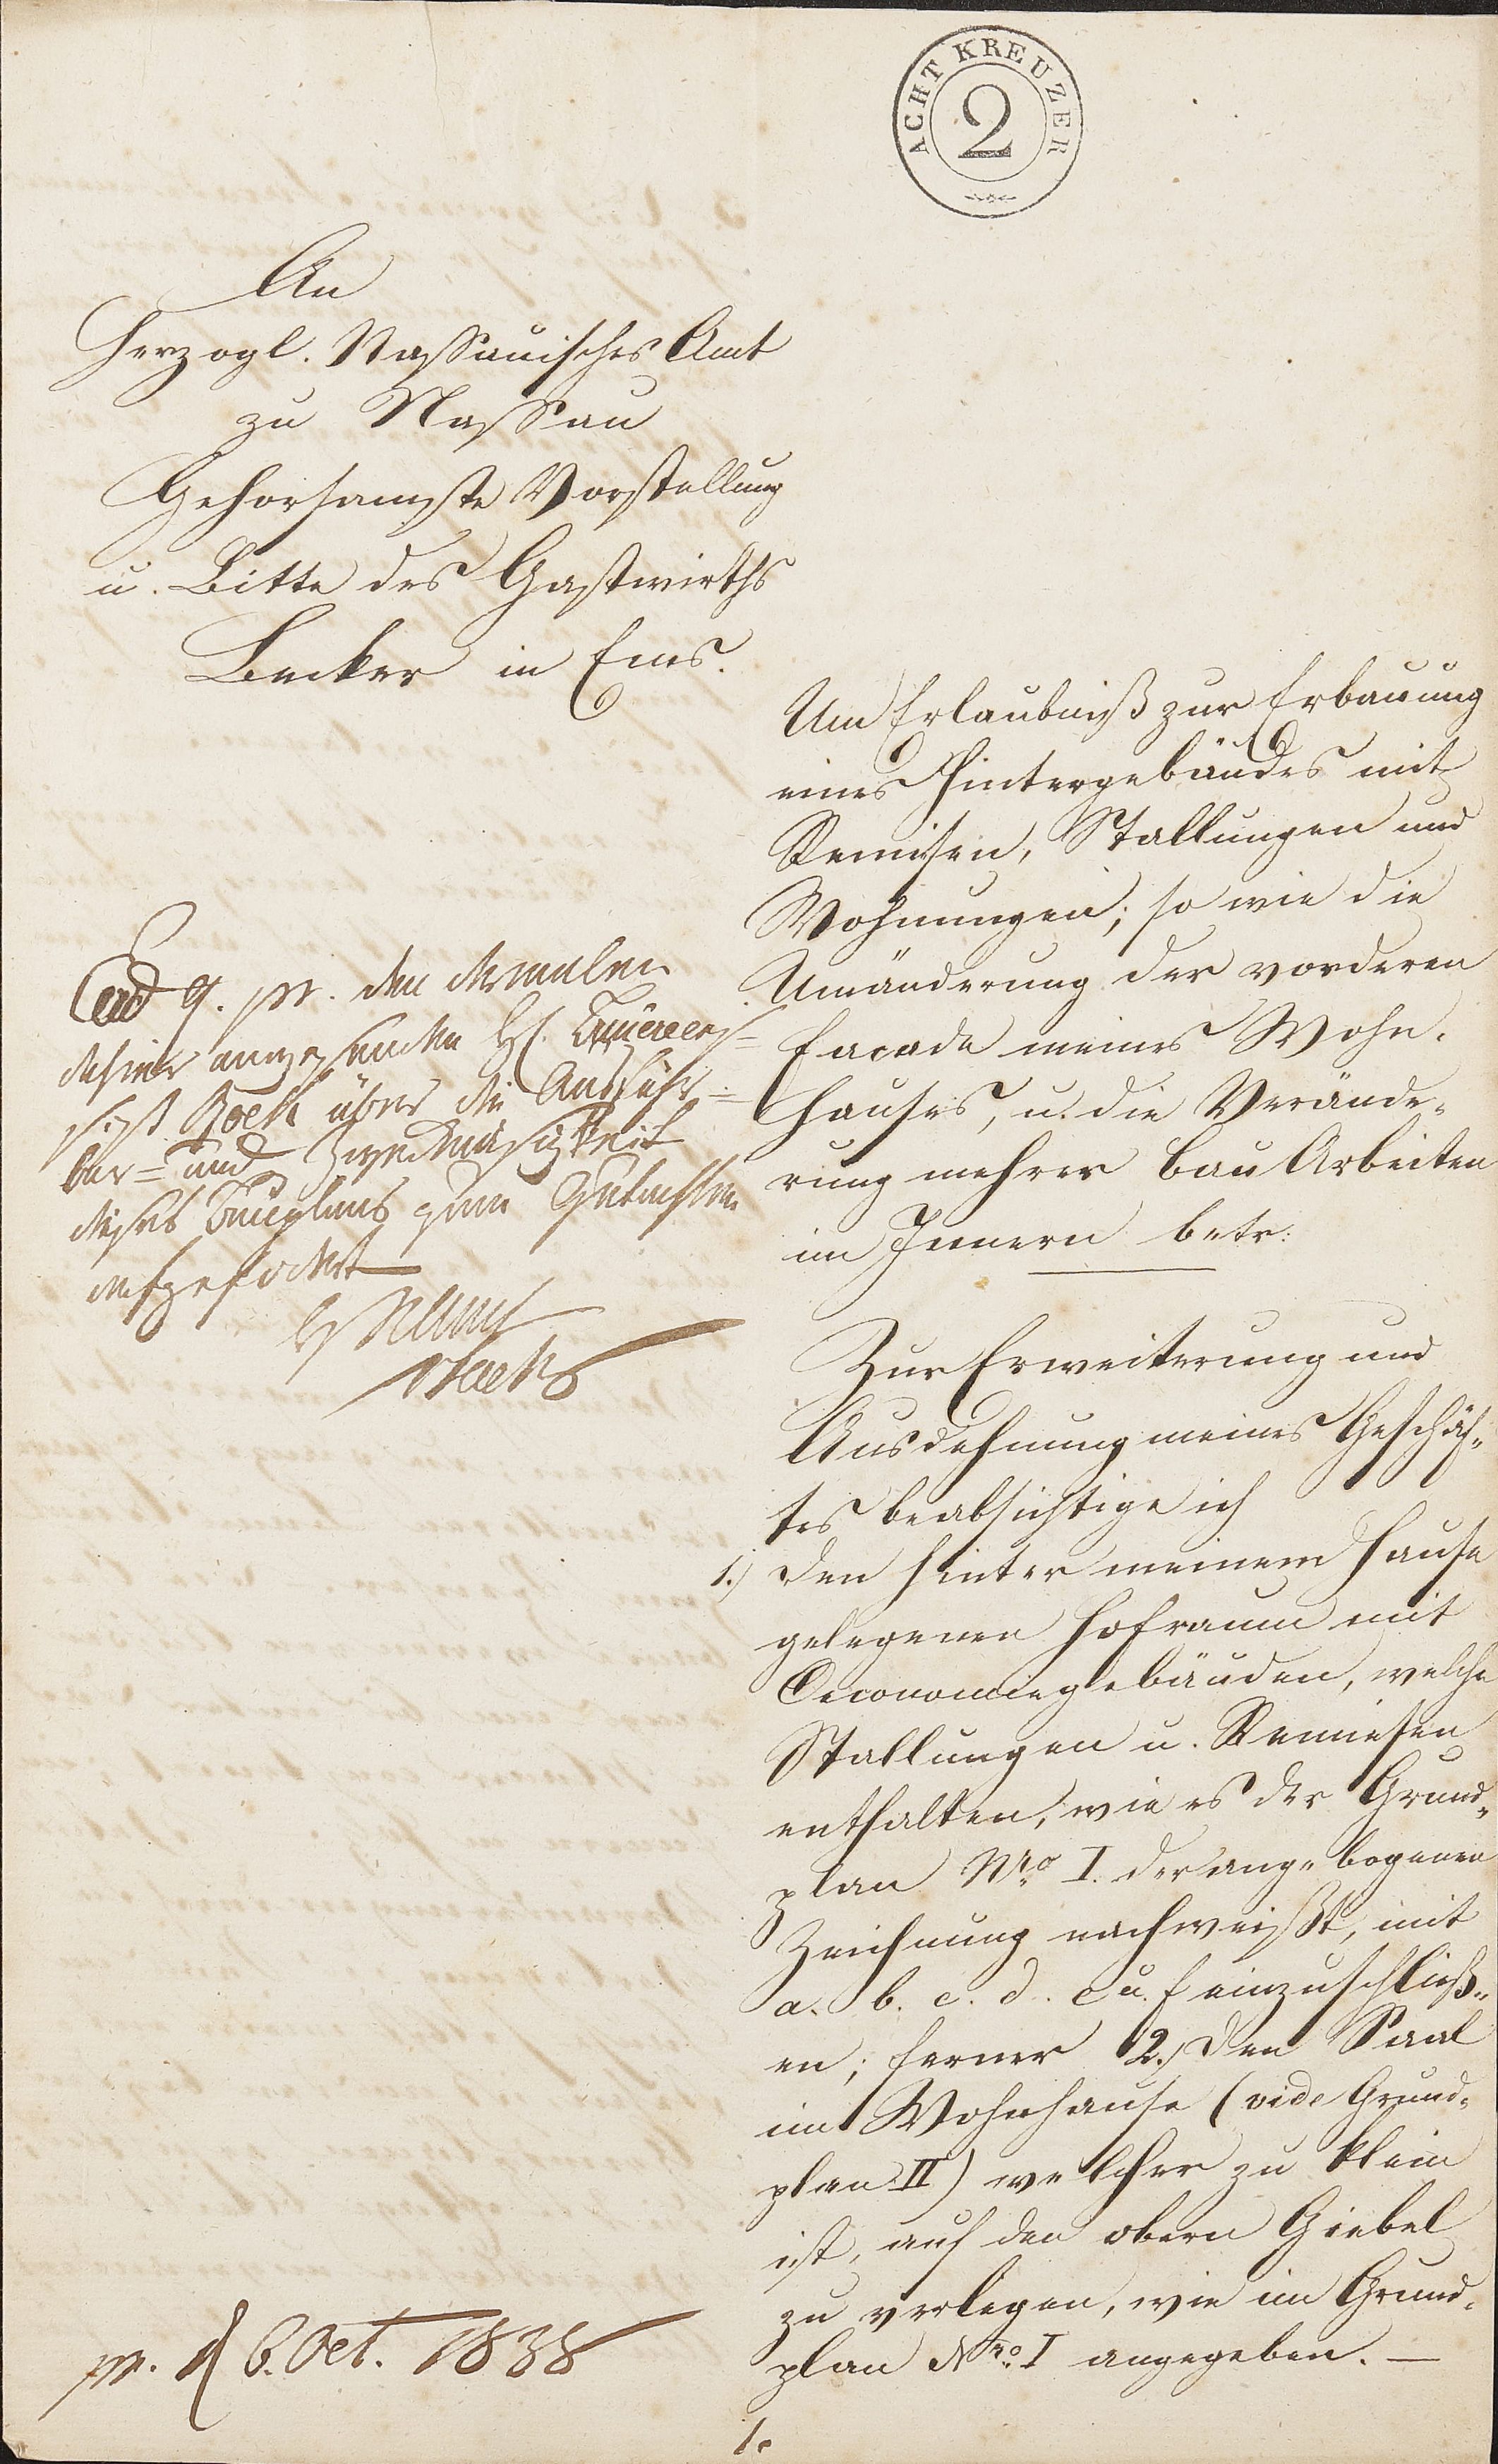 ACHT KREUZER
2
An
Herzogl. Nassauisches Amt
zu Nassau
Gehorsamste Vorstellung
u. Bitte des Gastwirths
Becker in Ems.
Um Erlaubniß zur Erbauung
eines Hintergebäudes mit
Remisen, Stallungen und
Wohnungen; so wie die
Umänderung der vorderen
Facade meines Wohn-
hauses, u. die Verände-
rung mehrer Bau Arbeiten
im Innern betr:
Zur Erweiterung und
Ausdehnung meines Geschäf-
tes beabsichtige ich
1.) den hinter meinem Hause
gelegenen Hofraum mit
Oeconomiegebäuden, welche
Stallungen u. Remiesen
enthalten, wie es der Grund-
plan Nro I. der angebogenen
Zeichnung nachweißt, mit
a. b. c. d. e u. f einzuschließ-
en; ferner 2.) den Saal
im Wohnhause (vide Grund-
plan II) welcher zu klein
ist, auf den obern Giebel
zu verlegen, wie im Grund-
plan Nro I angegeben. —
1.
den dermalen
über die Ausführ-
bar- und Zweckmäsigkeit
dieses Bauplans zum Gutachten
pr. d 6. Oct. 1838